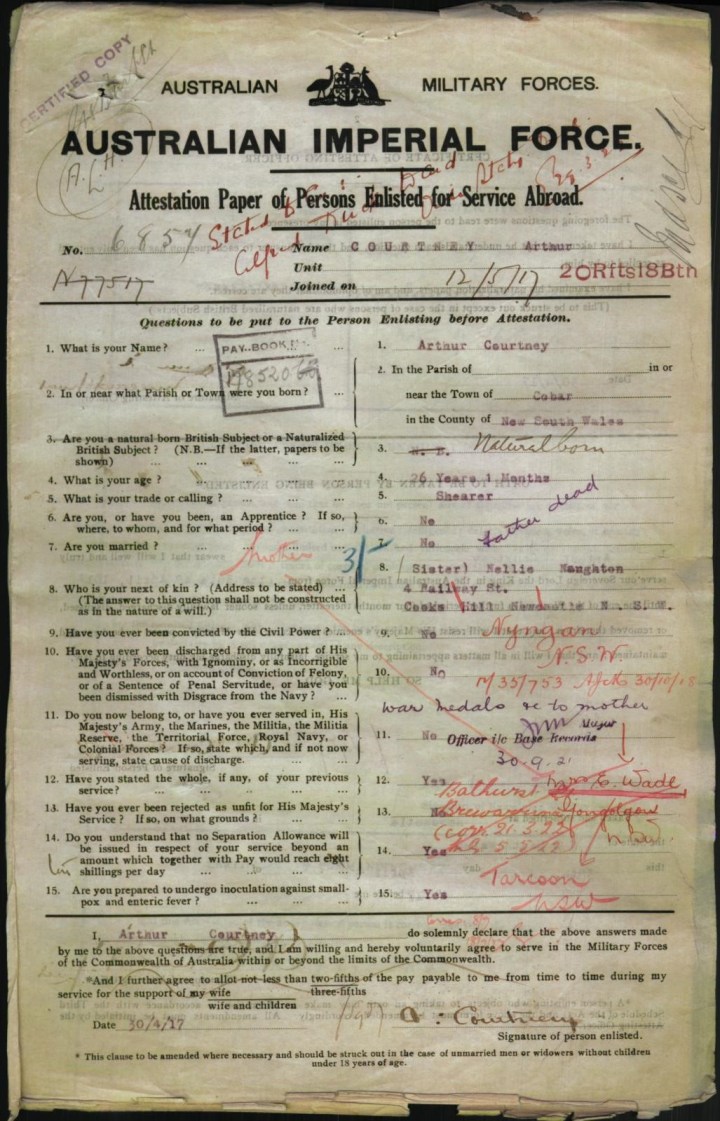 CERTIFIED COPY
AUSTRALIAN MILITARY FORCES.
AUSTRALIAN IMPERIAL FORCE.
A.L.H.
Attestation Paper of Persons Enlisted for Service Abroad.
No. 6857
Stated to
Alfred
Name COURTNEY Arthur
N77517
Unit 20Rfts18Btn
Joined on 12/5/17
Questions to be put to the Person Enlisting before Attestation.
1. What is your Name? ... ... ... 1. Arthur Courtney
PAY-BOOK No.
2. In the Parish of in or
2. In or near what Parish or Town were you born? ... near the Town of Cobar
in the County of New South Wales
3. Are you a natural born British Subject or a Naturalized
British Subject? (N.B.—If the latter, papers to be 3. N. B. Natural born
shown) ... ... ... ...
4. What is your age? ... ... ... 4. 26 Years 1 Months
5. What is your trade or calling? ... ... ... 5. Shearer
6. Are you, or have you been, an Apprentice? If so,
where, to whom, and for what period? ... ... 6. No
father dead
7. Are you married? ... ... ... ... 7. No
mother 3/-
8. (Sister) Nellie Naughton
8. Who is your next of kin? (Address to be stated) ... 4 Railway St.
(The answer to this question shall not be constructed Cooks Hill Newcastle N. S. W.
as in the nature of a will.)
9. Have you ever been convicted by the Civil Power? ... 9. No
Nyngan
N.S.W
10. Have you ever been discharged from any part of His
Majesty's Forces, with Ignominy, or as Incorrigible
and Worthless, or on account of Conviction of Felony, 10. No
or of a Sentence of Penal Servitude, or have you
been dismissed with Disgrace from the Navy? ...
M/35/753 30/10/18
war medals &c to mother
11. Do you now belong to, or have you ever served in, His
Majesty's Army, the Marines, the Militia, the Militia
Reserve, the Territorial Force, Royal Navy, or 11. No
Colonial Forces? If so, state which, and if not now
serving, state cause of discharge. ... ...
Major
Officer i/c Base Records
30.9.21
12. Have you stated the whole, if any, of your previous
service? ... ... ... ... 12. Yes
Bathurst Mrs E. Wade
13. Have you ever been rejected as unfit for His Majesty's
Service? If so, on what grounds? ... ... 13. No
Brewarrina
14. Do you understand that no Separation Allowance will
be issued in respect of your service beyond an
amount which together with Pay would reach eight 14. Yes
ten shillings per day ... ... ...
Tarcoon
NSW
15. Are you prepared to undergo inoculation against small-
pox and enteric fever? ... ... ... 15. Yes
I, Arthur Courtney do solemnly declare that the above answers made
by me to the above questions are true, and I am willing and hereby voluntarily agree to serve in the Military Forces
of the Commonwealth of Australia within or beyond the limits of the Commonwealth.
*And I further agree to allot not less than two-fifths of the pay payable to me from time to time during my
three-fifths
service for the support of my wife
wife and children
Date 30/4/17 A. Courtney
Signature of person enlisted.
* This clause to be amended where necessary and should be struck out in the case of unmarried men or widowers without children
under 18 years of age.